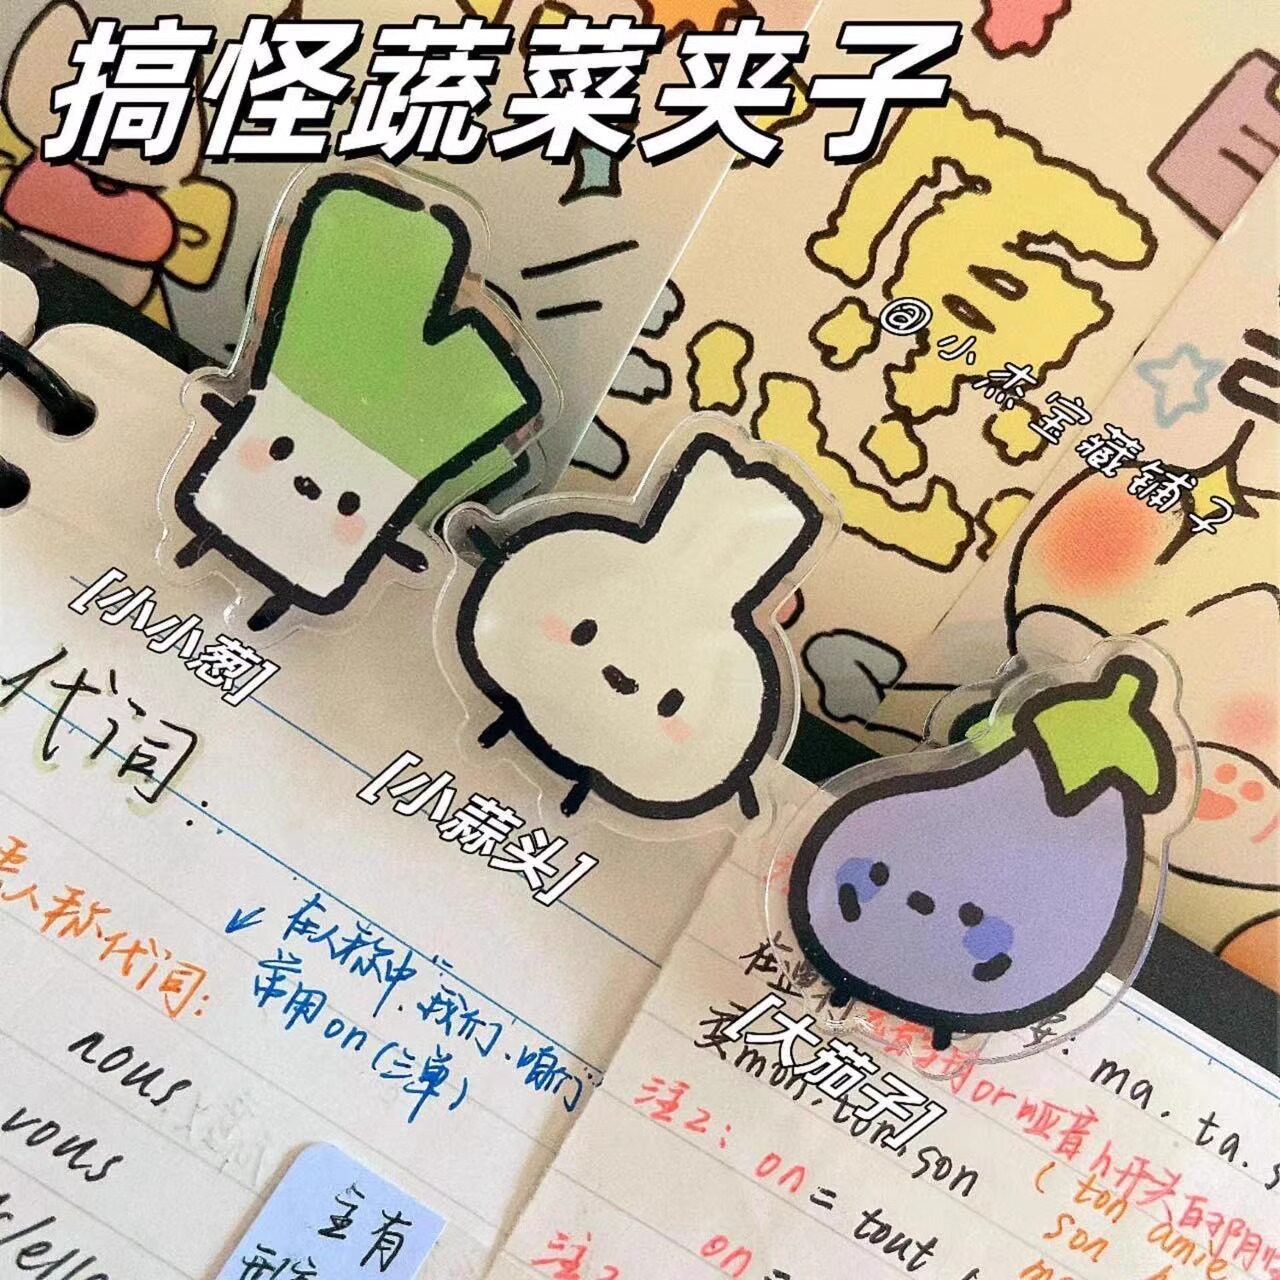 搞怪蔬菜夹子
@小杰宝藏铺子
[小小葱]
代词.
[小蒜头]
人称代词:
在人称中,我们、咱们
常用on(三单)
nous
vous
[大茄子]
ma. ta. s
变mon. ton. son
or哑音h开头的阴
注2: on = tout
(ton amie
son
主有
注
on =